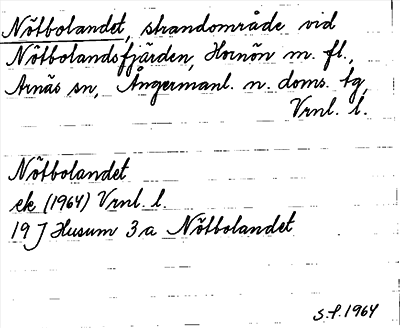 Nötbolandet, strandområde vid
Nötbolandsfjärden, Hornön m. fl.,
Arnäs sn, Ångermanl. n. doms. tg,
Vrnl. l.
Nötbolandet
ek (1964) Vrnl. l.
19 J Husum 3 a Nötbolandet
S. f. 1964